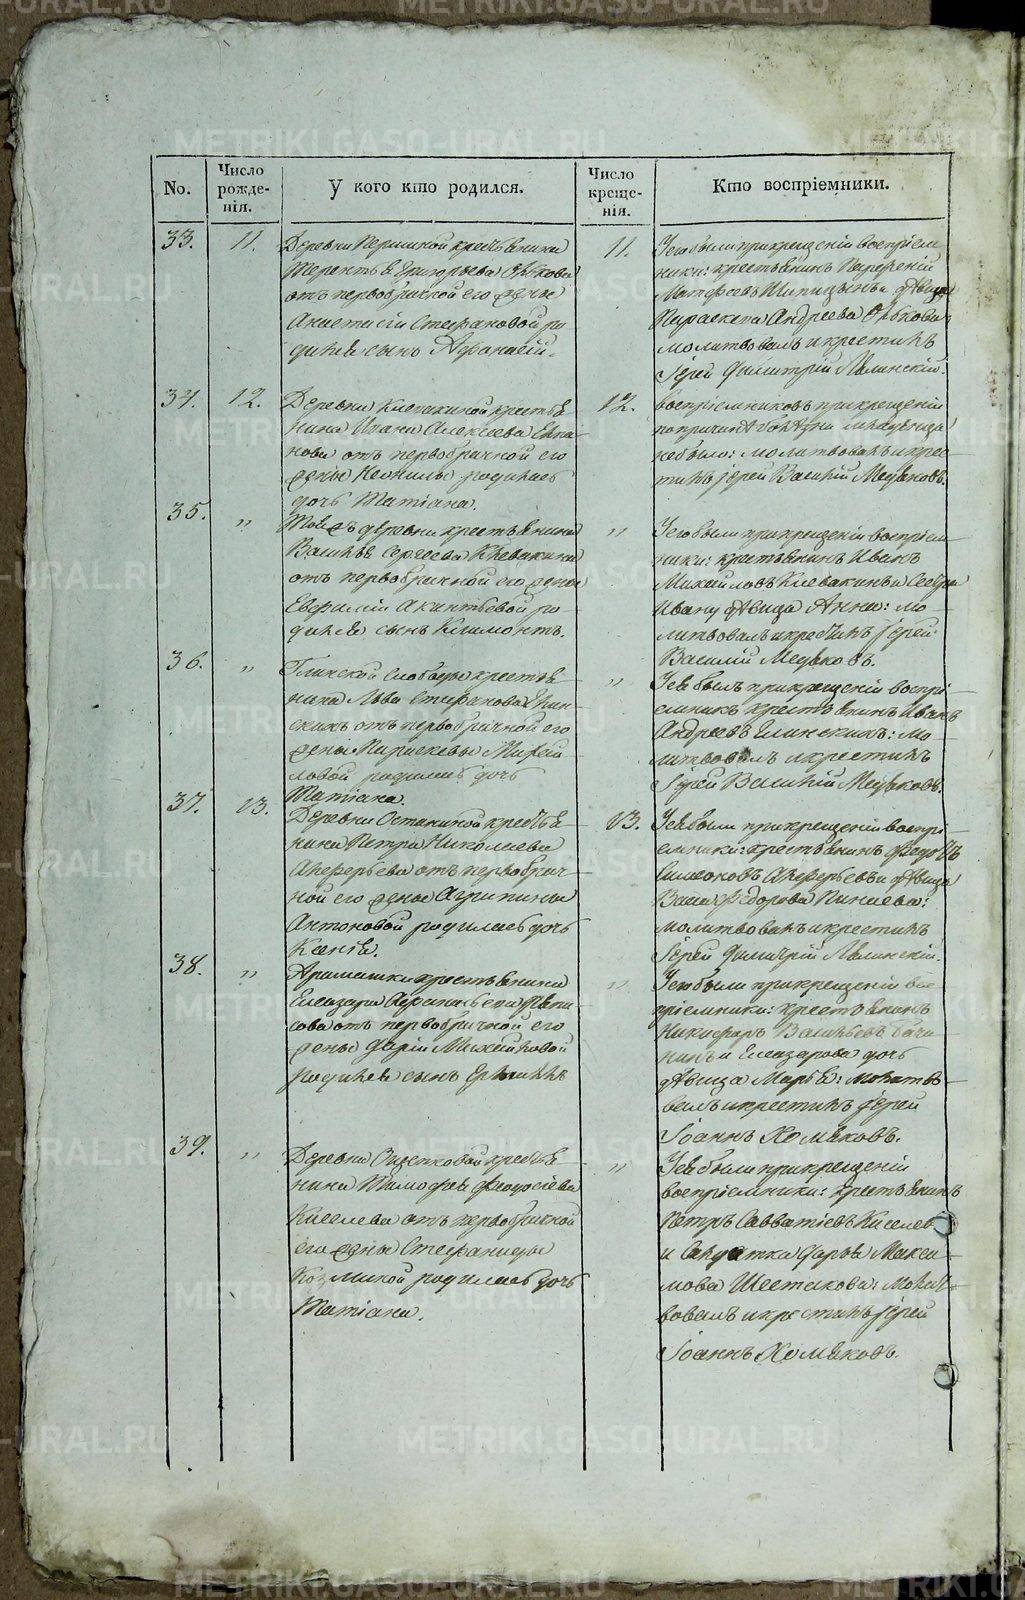 No.
Число рожде-
нія.
У кого кто родился.
Число креще-
нія.
Кто воспріемники.
33.
11.
Деревни Першиной крестьянина
Терентья Григорьева
отъ первобрачной его жены
Анастасіи Стефановой ро
дился сынъ Афанасій.
11.
У его были при крещеніи воспріем
ники: крестьянинъ Парфеній
Матфеевъ Шипицынъ и дѣвица
Параскева Андреева
молитвовалъ и крестилъ
Іерей Димитрій
34.
12.
Деревни Клевакиной крестья
нина Ивана Алексеева
нова отъ первобрачной его
жены Неонилы родилась
дочь Татіана.
12.
воспріемниковъ при крещеніи
по причинѣ болѣзни младенца
не было: молитвовалъ и крес
тилъ Іерей Василій Медяковъ.
35.
"
Тояжъ деревни крестьянина
Василья Сергеева Клевакина
отъ первобрачной его жены
Евфиміи Акинтьевой ро
дился сынъ Климонтъ.
"
У его были при крещеніи воспріем
ники: крестьянинъ Иванъ
Михайловъ Клевакинъ и Сестра
Ивану дѣвица Анна: мо
литвовалъ и крестилъ Іерей
Василій Медяковъ.
36.
"
Глинской слободы крестья
нина Льва Стефанова Глин
скихъ отъ первобрачной его
жены Параскевы Михай
ловой родилась дочь
Татіана.
"
У ея былъ при крещеніи воспрі
емникъ крестьянинъ Иванъ
Андреевъ Глинскихъ: мо
литвовалъ и крестилъ
Іерей Василій Медяковъ.
37.
13.
Деревни Останиной крестья
нина Петра Николаева
Алферьева отъ первобрач
ной его жены Агрипины
Антоновой родилась дочь
Ксенія.
13.
У ея были при крещеніи воспрі
емники: крестьянинъ Федотъ
Симеоновъ Алферьевъ и дѣвица
Васса Федорова Пинаева:
молитвовалъ и крестилъ
Іерей Димитрій
38.
"
Арамашки крестьянина
Елеазара Афанасьева Дени
сова отъ первобрачной его
жены Даріи Михайловой
родился сынъ
"
У его были при крещеніи вос
пріемники: крестьянинъ
Никифоръ Васильевъ Бачи
нинъ и Елеазарова дочь
дѣвица Марья: молитво
валъ и крестилъ Іерей
Іоаннъ Хомяковъ.
39.
"
Деревни Ощепковой крестья
нина Тимофея Феодосіева
Киселева отъ первобрачной
его жены Стефаниды
Козминой родилась дочь
Татіана.
"
У ея были при крещеніи
воспріемники: крестьянинъ
Петръ Савватіевъ Киселевъ
и Солдатка Дарья Макси
мова Шестакова: молит
вовалъ и крестилъ Іерей
Іоаннъ Хомяковъ.
METRIKI.GASO-URAL.RU